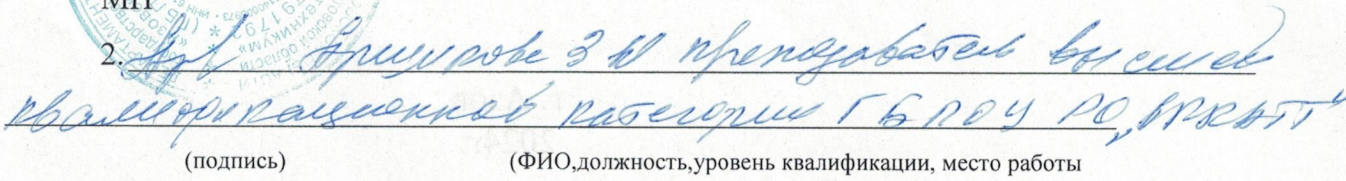 МП
2. З Ю преподаватель высшей
квалификационной категории ГБПОУ РО
(подпись) (ФИО,должность,уровень квалификации, место работы